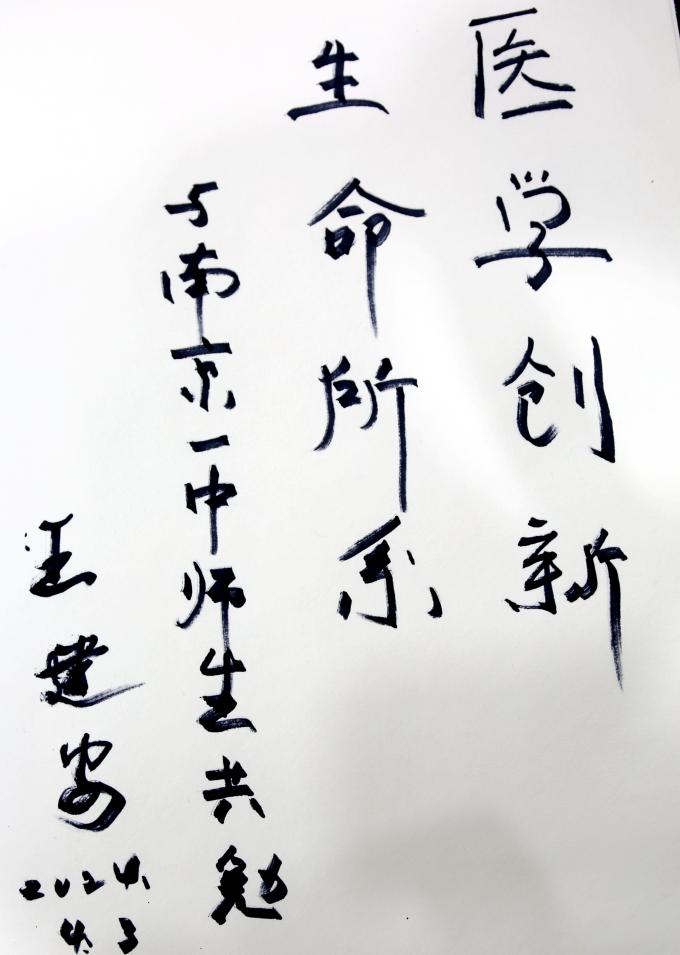 医学创新
生命所系
与南京一中师生共勉
王建安
2024.
4.3